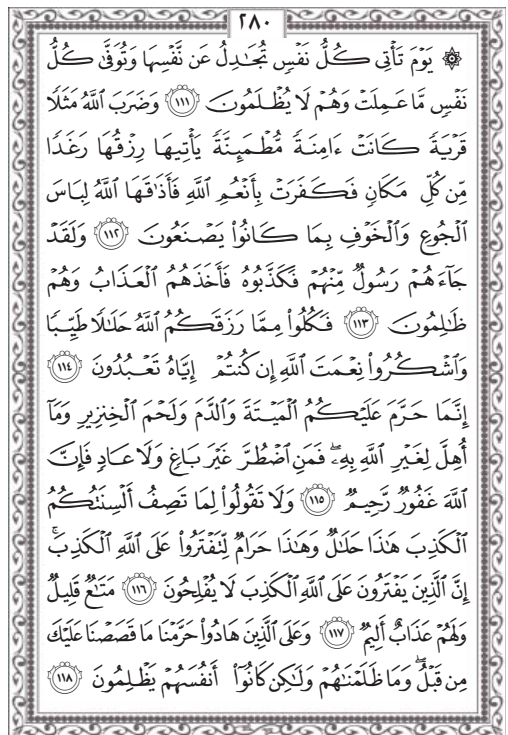 ٢٨٠
۞ يَوْمَ تَأْتِى كُلُّ نَفْسٍ تُجَٰدِلُ عَن نَّفْسِهَا وَتُوَفَّىٰ كُلُّ
نَفْسٍ مَّا عَمِلَتْ وَهُمْ لَا يُظْلَمُونَ ﴿١١١﴾ وَضَرَبَ ٱللَّهُ مَثَلًا
قَرْيَةً كَانَتْ ءَامِنَةً مُّطْمَئِنَّةً يَأْتِيهَا رِزْقُهَا رَغَدًا
مِّن كُلِّ مَكَانٍ فَكَفَرَتْ بِأَنْعُمِ ٱللَّهِ فَأَذَٰقَهَا ٱللَّهُ لِبَاسَ
ٱلْجُوعِ وَٱلْخَوْفِ بِمَا كَانُوا۟ يَصْنَعُونَ ﴿١١٢﴾ وَلَقَدْ
جَآءَهُمْ رَسُولٌ مِّنْهُمْ فَكَذَّبُوهُ فَأَخَذَهُمُ ٱلْعَذَابُ وَهُمْ
ظَٰلِمُونَ ﴿١١٣﴾ فَكُلُوا۟ مِمَّا رَزَقَكُمُ ٱللَّهُ حَلَٰلًا طَيِّبًا
وَٱشْكُرُوا۟ نِعْمَتَ ٱللَّهِ إِن كُنتُمْ إِيَّاهُ تَعْبُدُونَ ﴿١١٤﴾
إِنَّمَا حَرَّمَ عَلَيْكُمُ ٱلْمَيْتَةَ وَٱلدَّمَ وَلَحْمَ ٱلْخِنزِيرِ وَمَآ
أُهِلَّ لِغَيْرِ ٱللَّهِ بِهِۦ ۖ فَمَنِ ٱضْطُرَّ غَيْرَ بَاغٍ وَلَا عَادٍ فَإِنَّ
ٱللَّهَ غَفُورٌ رَّحِيمٌ ﴿١١٥﴾ وَلَا تَقُولُوا۟ لِمَا تَصِفُ أَلْسِنَتُكُمُ
ٱلْكَذِبَ هَٰذَا حَلَٰلٌ وَهَٰذَا حَرَامٌ لِّتَفْتَرُوا۟ عَلَى ٱللَّهِ ٱلْكَذِبَ ۚ
إِنَّ ٱلَّذِينَ يَفْتَرُونَ عَلَى ٱللَّهِ ٱلْكَذِبَ لَا يُفْلِحُونَ ﴿١١٦﴾ مَتَٰعٌ قَلِيلٌ
وَلَهُمْ عَذَابٌ أَلِيمٌ ﴿١١٧﴾ وَعَلَى ٱلَّذِينَ هَادُوا۟ حَرَّمْنَا مَا قَصَصْنَا عَلَيْكَ
مِن قَبْلُ ۖ وَمَا ظَلَمْنَٰهُمْ وَلَٰكِن كَانُوٓا۟ أَنفُسَهُمْ يَظْلِمُونَ ﴿١١٨﴾